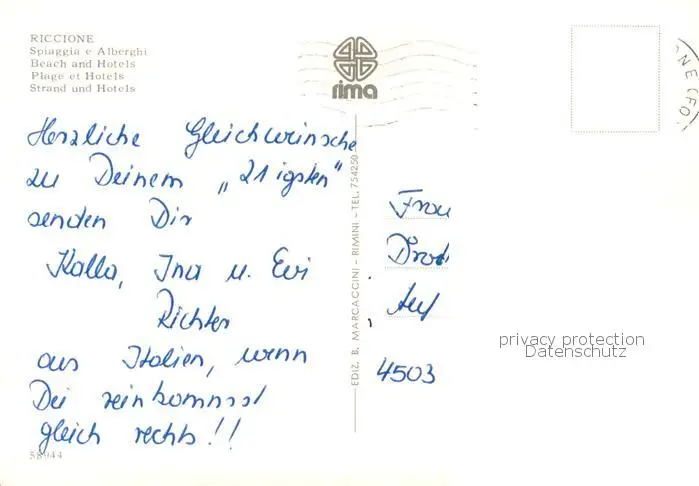 RICCIONE
Spiaggia e Alberghi
Beach and Hotels
Plage et Hotels
Strand und Hotels
rima
NE (FO)
Herzliche Gleichwünsche
zu Deinem „21igsten"
senden Dir
Kalla, Ina u. Evi
Richter
aus Italien, wenn
Du reinkommst
gleich rechts!!
58944
EDIZ. B. MARCACCINI - RIMINI - TEL. 754250
Frau
Auf
4503
privacy protection
Datenschutz